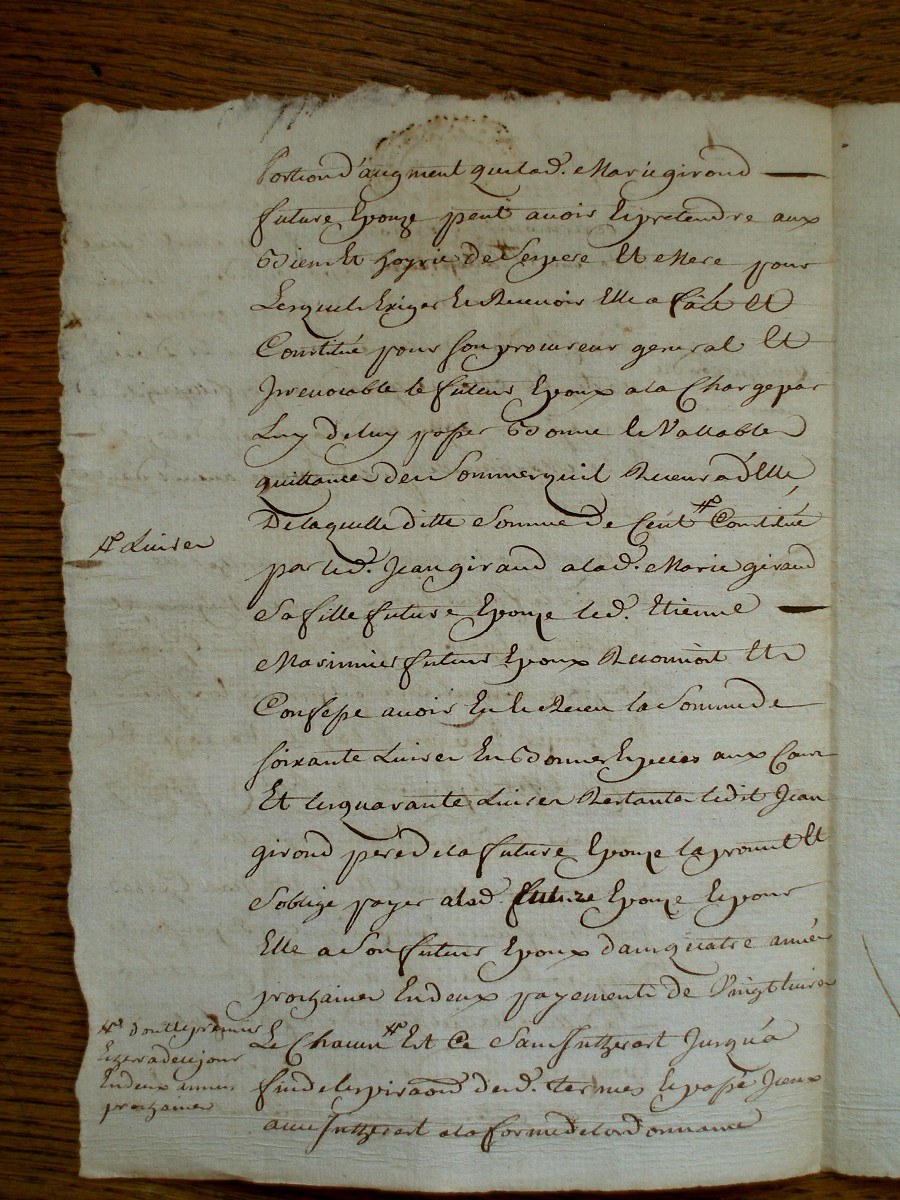 Portion d'augment que lad. Marie girond
future Epouze peut avoir Et pretendre aux
Biens Et hoyrie de Ses pere Et Mere pour
Lesquels Exiger Et Recevoir Elle a fait Et
Constitué pour son procureur general Et
Irrevocable le futeur Epoux a la Charge par
Luy de luy passer Bonne Et Vallable
quittance des Sommes quil Recevra d'Elle
De laquelle ditte Somme de Cent # Constitué
# Livres
par led. Jean giraud a lad. Marie giraud
Sa fille future Epouze led. Etienne
futeur Epoux Reconnoit Et
Confesse avoir Eu Et Receu la Somme de
soixante Livres En Bonnes Especes aux Cour
Et les quarante Livres Restantes ledit Jean
girond pere de la future Epouze la promit Et
Soblige payer a lad. future Epouze Et pour
Elle a Son futeur Epoux dans quatre années
prochaines En deux payements de Vingt livres
# dont le premier
Le Chacun # Est Ce Sans Intherest Jusqu'a
Et sera de ce jour
En deux années
prochaines
fin de Lespiraon desd. termes Et passé Iceux
avec Intherest a la forme de lordonnance